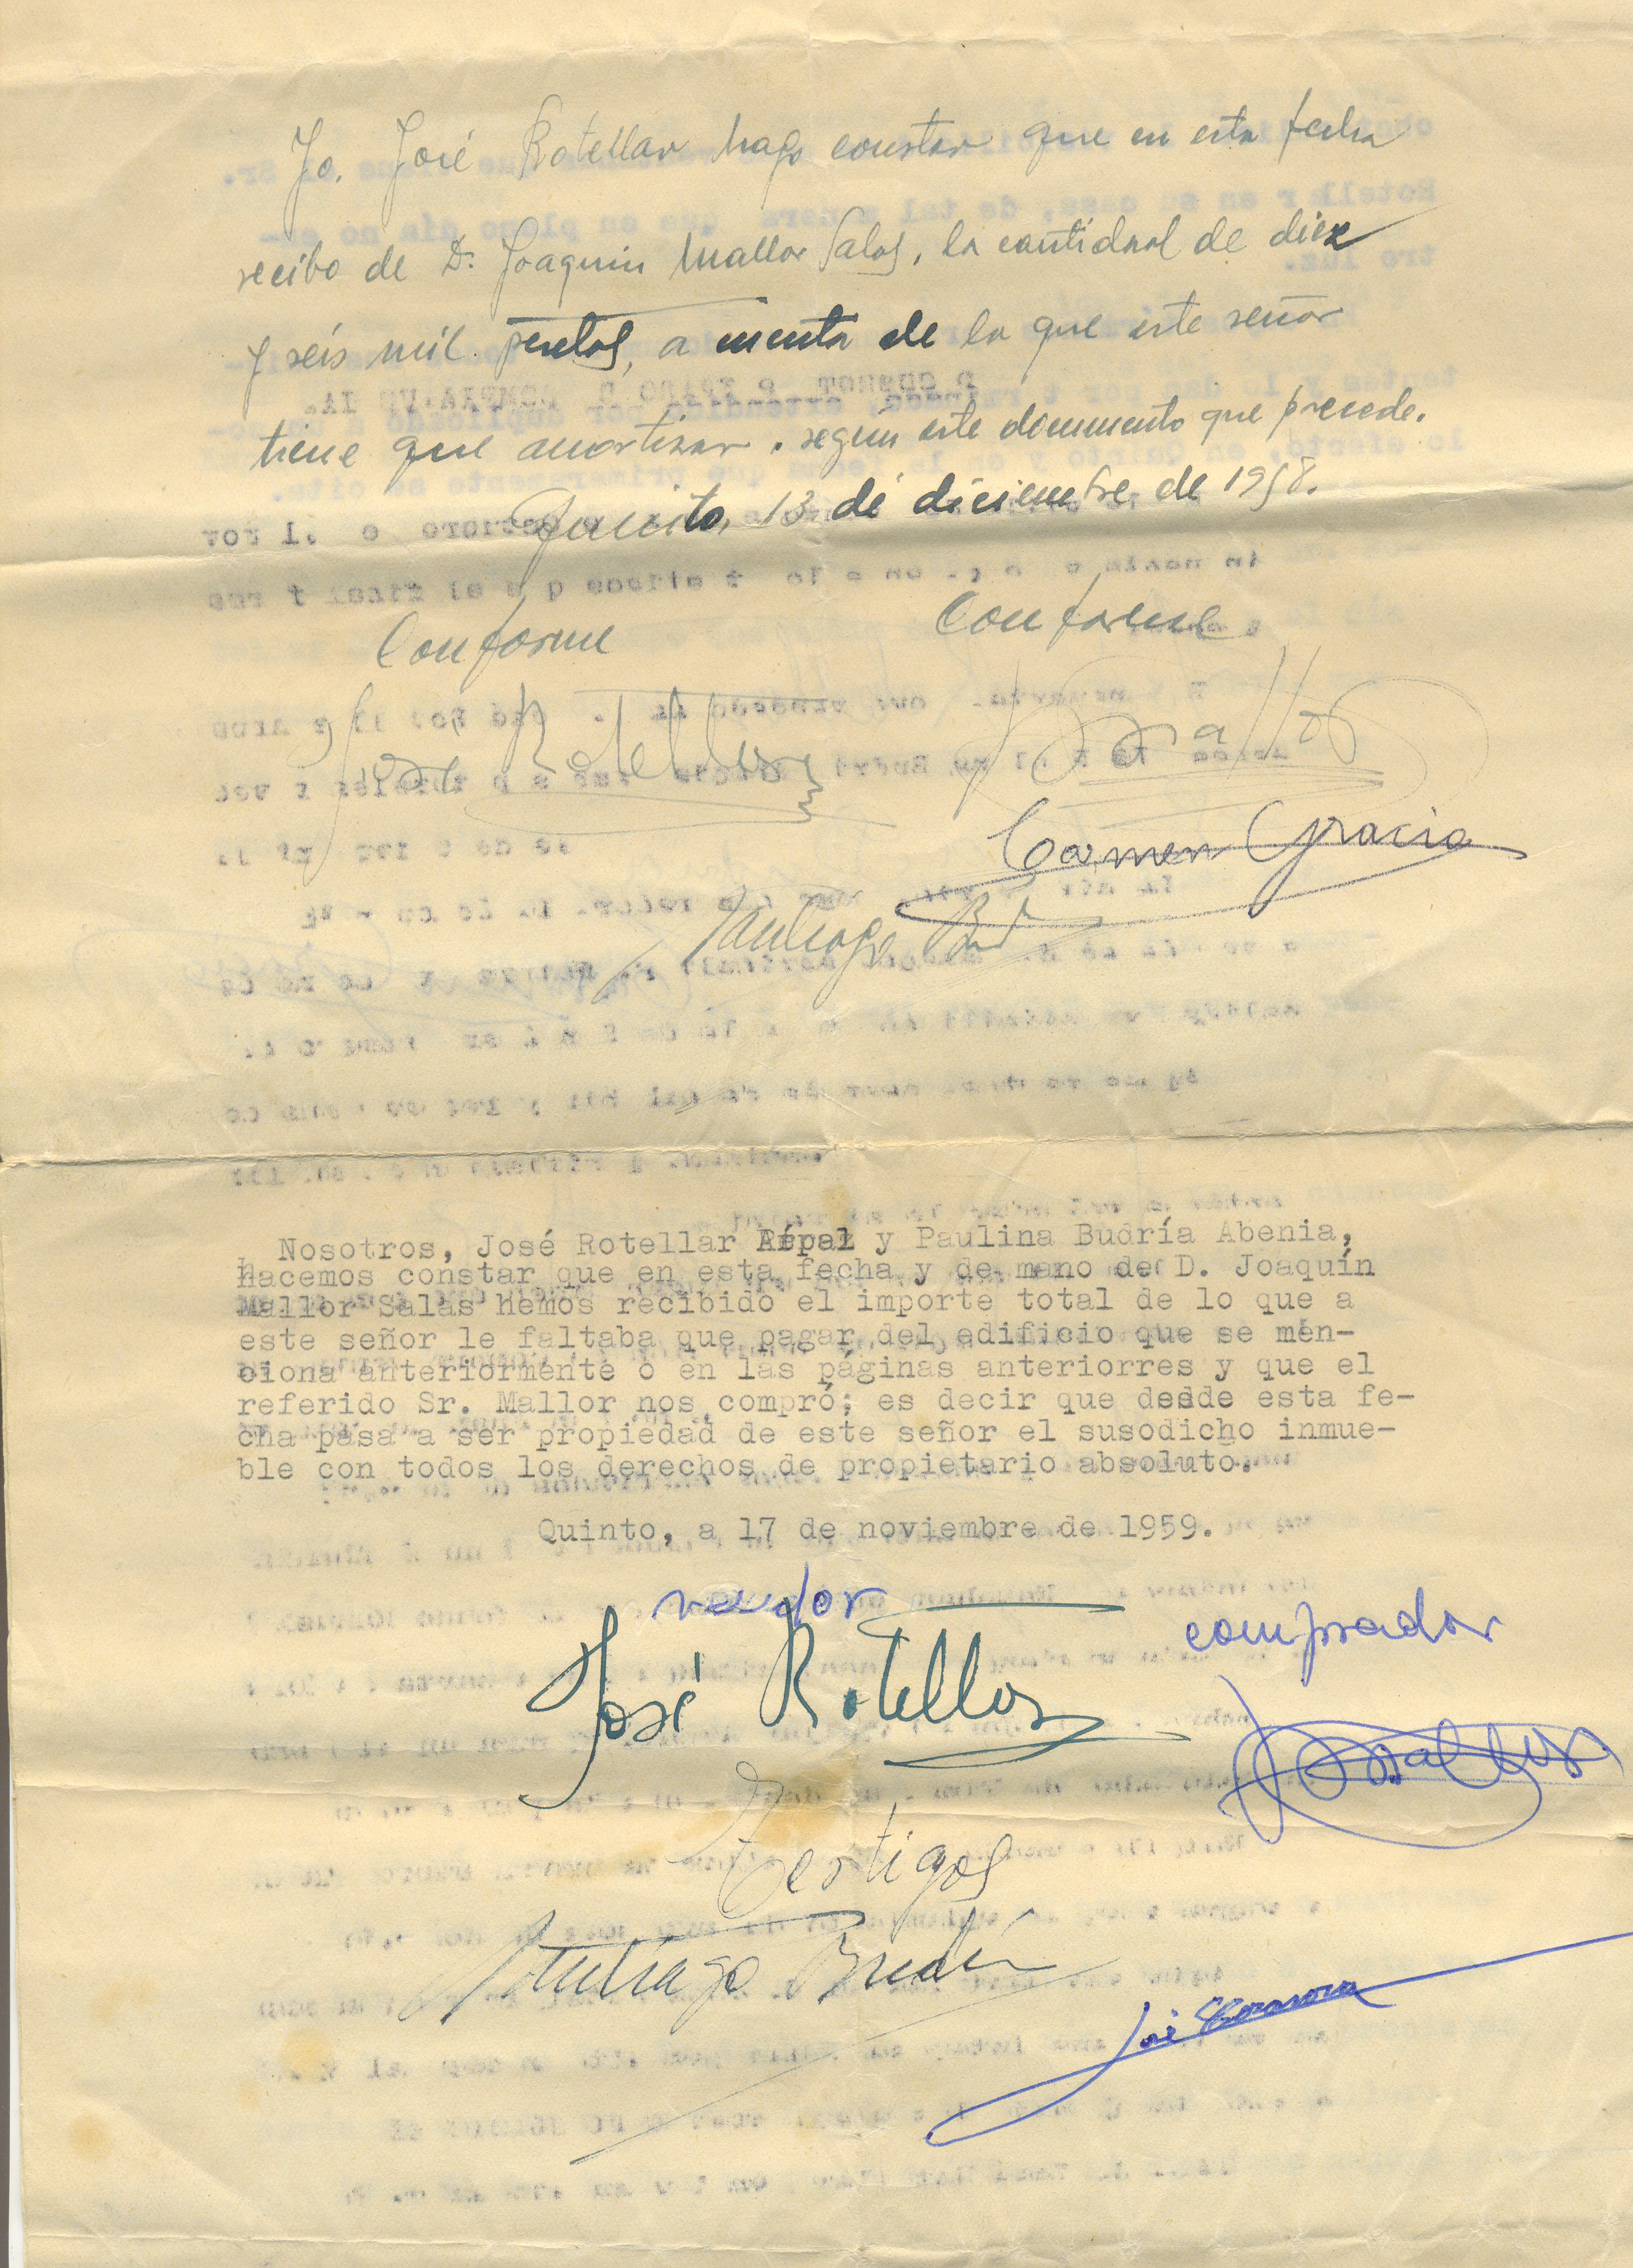 Yo. José Rotellar hago constar que en esta fecha
recibo de D. Joaquin Mallor Salas, la cantidad de diez
y seis mil pesetas, a cuenta de la que este señor
tiene que amortizar. según este documento que precede.
Quinto, 13 de diciembre de 1958.
Conforme Conforme
José Rotellar Mallor
Carmen Gracia
Santiago
Nosotros, José Rotellar y Paulina Budría Abenia,
hacemos constar que en esta fecha y de mano de D. Joaquín
Mallor Salas hemos recibido el importe total de lo que a
este señor le faltaba que pagar del edificio que se men-
ciona anteriormente o en las páginas anteriorres y que el
referido Sr. Mallor nos compró; es decir que desde esta fe-
cha pasa a ser propiedad de este señor el susodicho inmue-
ble con todos los derechos de propietario absoluto.
Quinto, a 17 de noviembre de 1959.
vendor
comprador
José Rotellar
Mallor
Testigos
Santiago Budría
José